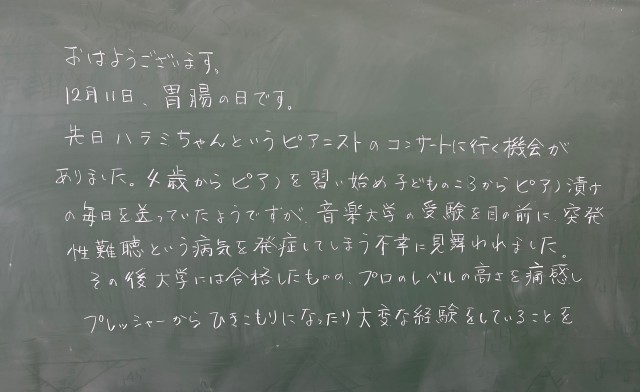 おはようございます。
12月11日、胃腸の日です。
先日ハラミちゃんというピアニストのコンサートに行く機会が
ありました。4歳からピアノを習い始め子どものころからピアノ漬け
の毎日を送っていたようですが、音楽大学の受験を目の前に、突発
性難聴という病気を発症してしまう不幸に見舞われました。
その後大学には合格したものの、プロのレベルの高さを痛感し
プレッシャーからひきこもりになったり大変な経験をしていることを